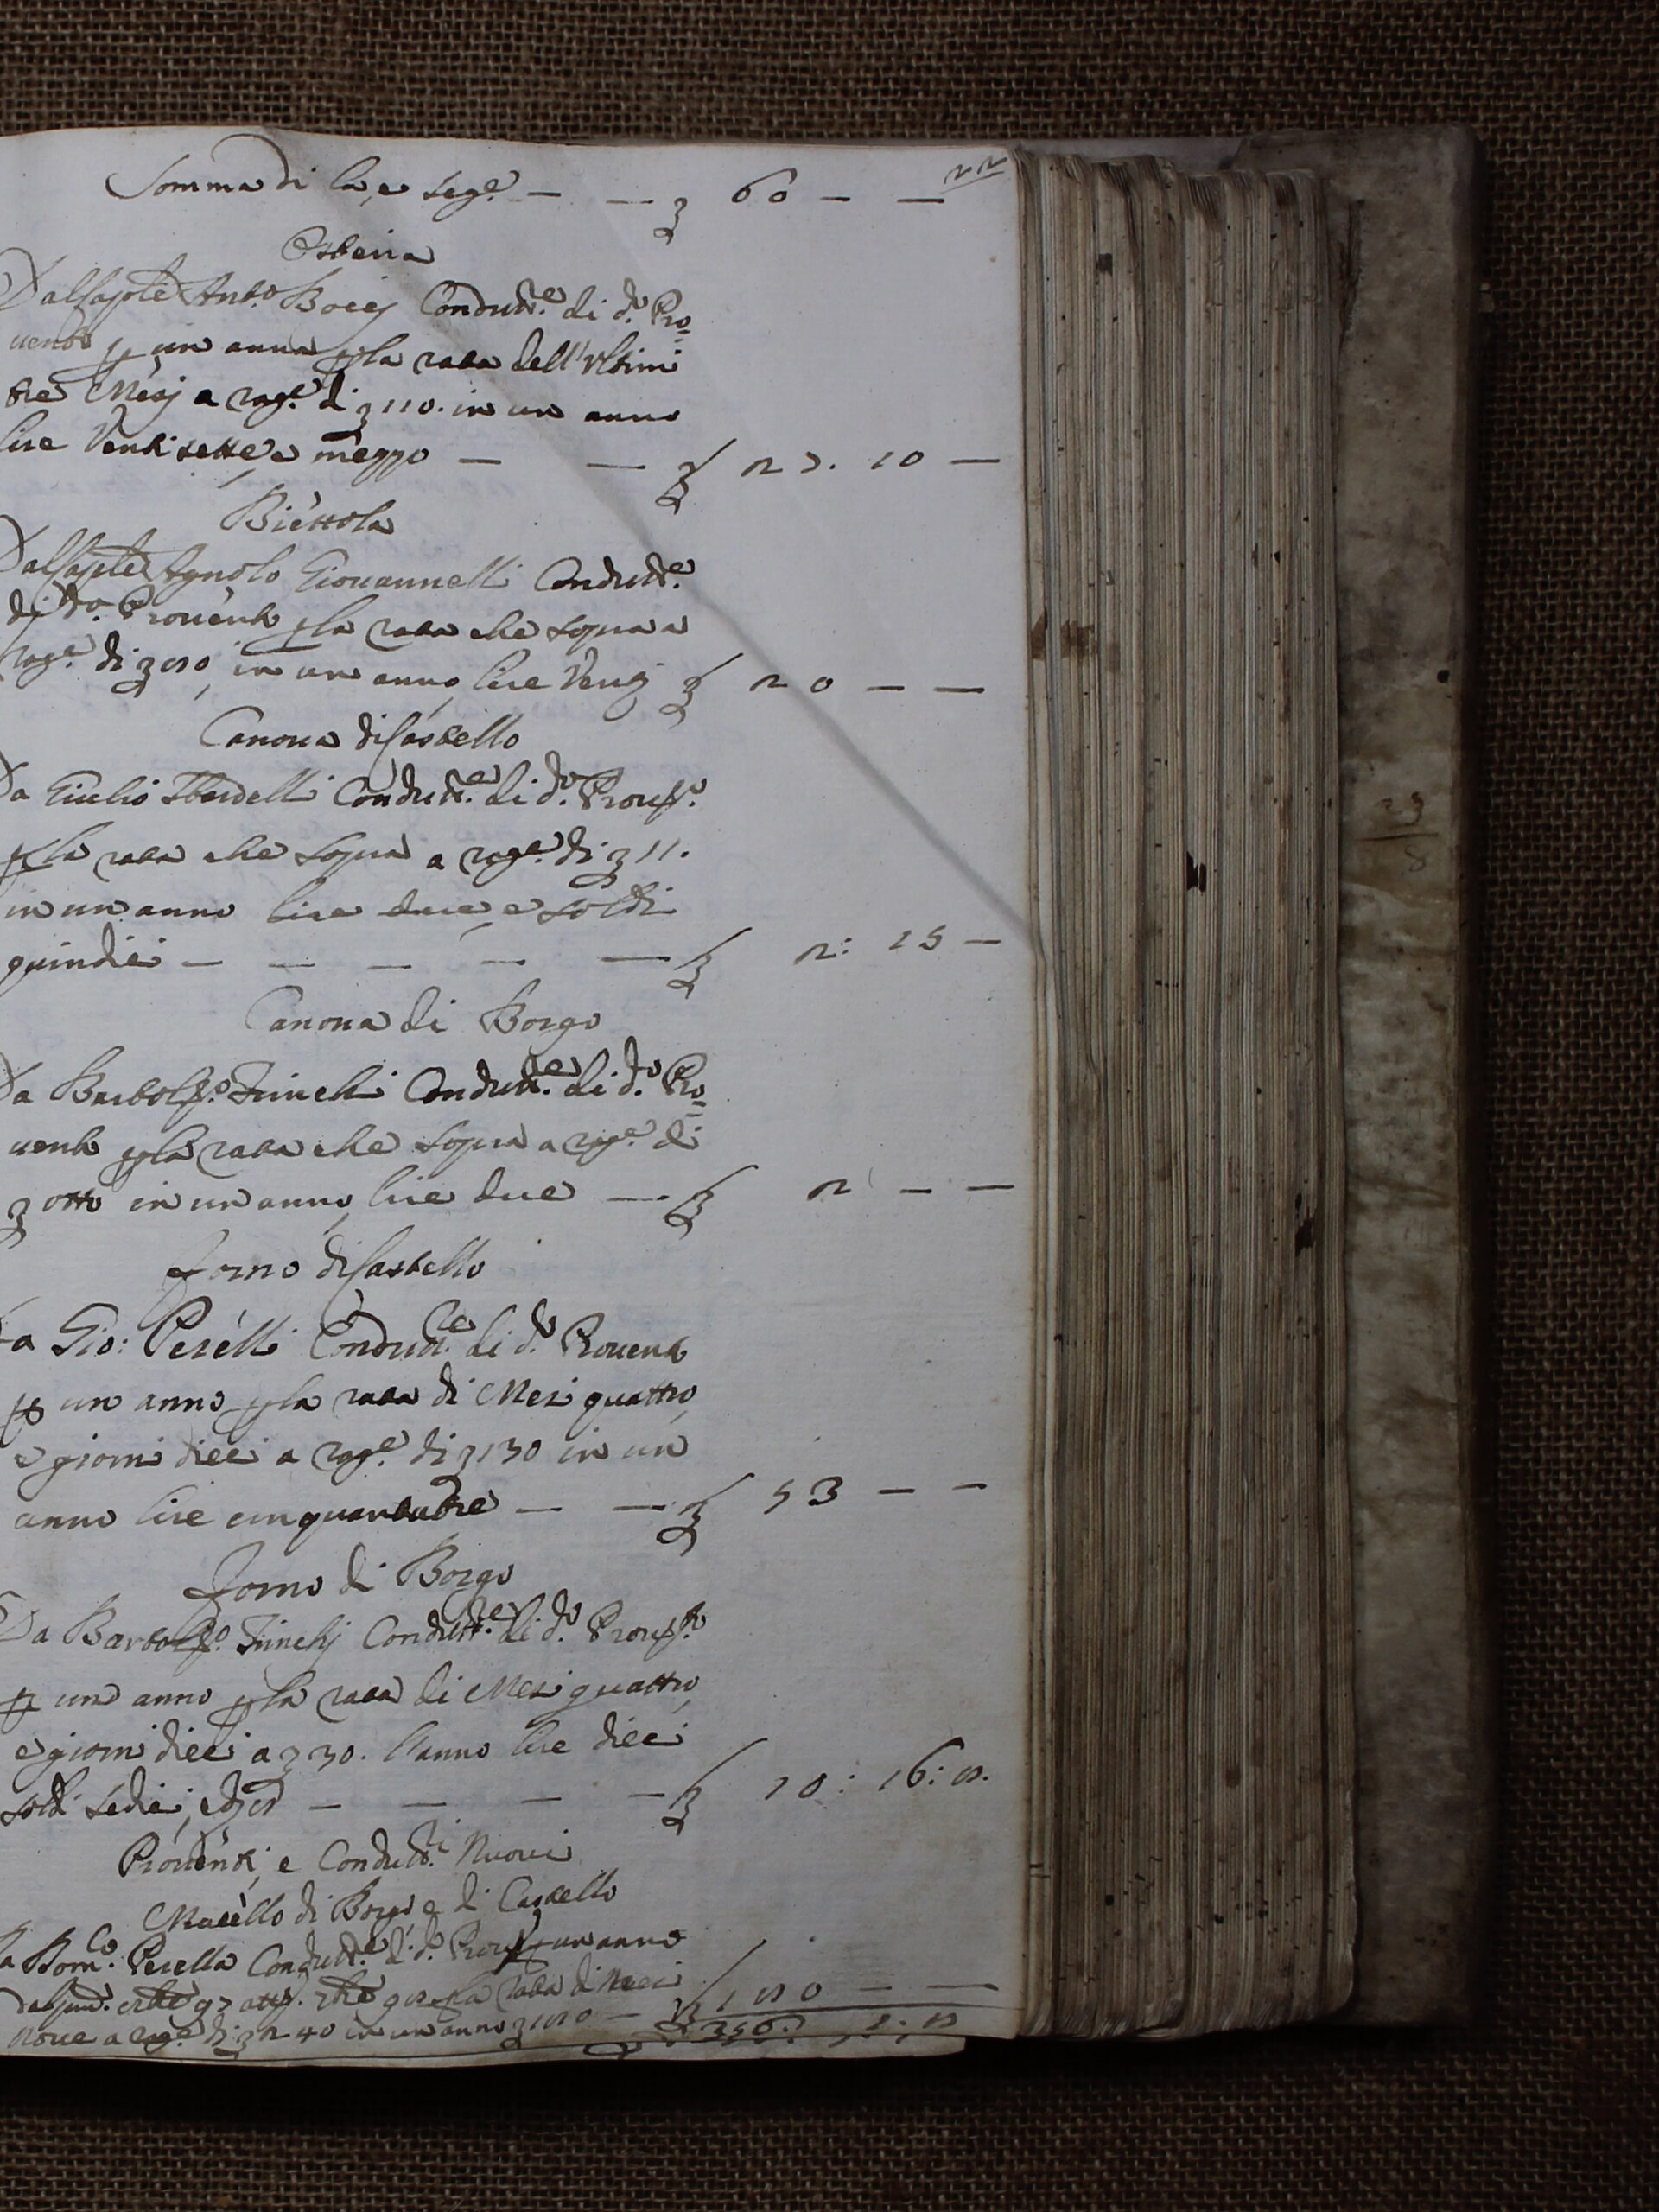 22
Somma di la, e segᵉ — — ʒ 60 — —
Osteria
Dal Capᵗᵉ Antᵒ Bocij Conduttʳᵉ di dᵒ Pro=
uento p un anno pla rata dell'Vltimi
tre Mesj a ragᵉ di ʒ 110. in un anno
lire Ventisette, e mezzo — — ʒ 27. 10 —
Biéttola
Dal Capᵗᵉ Agnolo Giouannelli Conduttʳᵉ
di dᵒ Prouento pla rata che sopra a
ragᵉ di ʒ 80, in un anno, lire Venti ʒ 20 — —
Canoua di Castello
Da Giulio Conduttʳᵉ di dᵒ Prouᵗᵒ
pla rata che sopra a ragᵉ di ʒ 11.
in un anno lire due, e soldi
quindici — — — — — ʒ 2: 15 —
Canoua di Borgo
Da Bartolᵒ Conduttʳᵉ di dᵒ Pro=
uento pla rata che sopra a ragᵉ di
ʒ otto in un anno, lire due — ʒ 2 — —
Forno di Castello
Da Gio: Perélli Conduttʳᵉ di dᵒ Prouento
p un anno pla rata di Mesi quattro,
e giorni dieci a ragᵉ di ʒ 130 in un
anno lire cinquantatre — — ʒ 53 — —
Forno di Borgo
Da Bartolᵒ Conduttʳᵉ di dᵒ Prouᵗᵒ
p un anno pla rata di Mesi quattro,
e giorni dieci a ʒ 30. l'anno lire dieci
soldi sedici, e — — — — ʒ 10: 16: 8.
Prouénti, e Conduttⁱ Nuoui
Macéllo di Borgo e di Castello
Da Domᶜᵒ Perella Conduttʳᵉ di dᵒ Prouᵗᵒ p un anno
pla rata di Mesi
Noue a ragᵉ di ʒ 240 in un anno ʒ 180 — ʒ 180 — —
ʒ 356: 1: 8